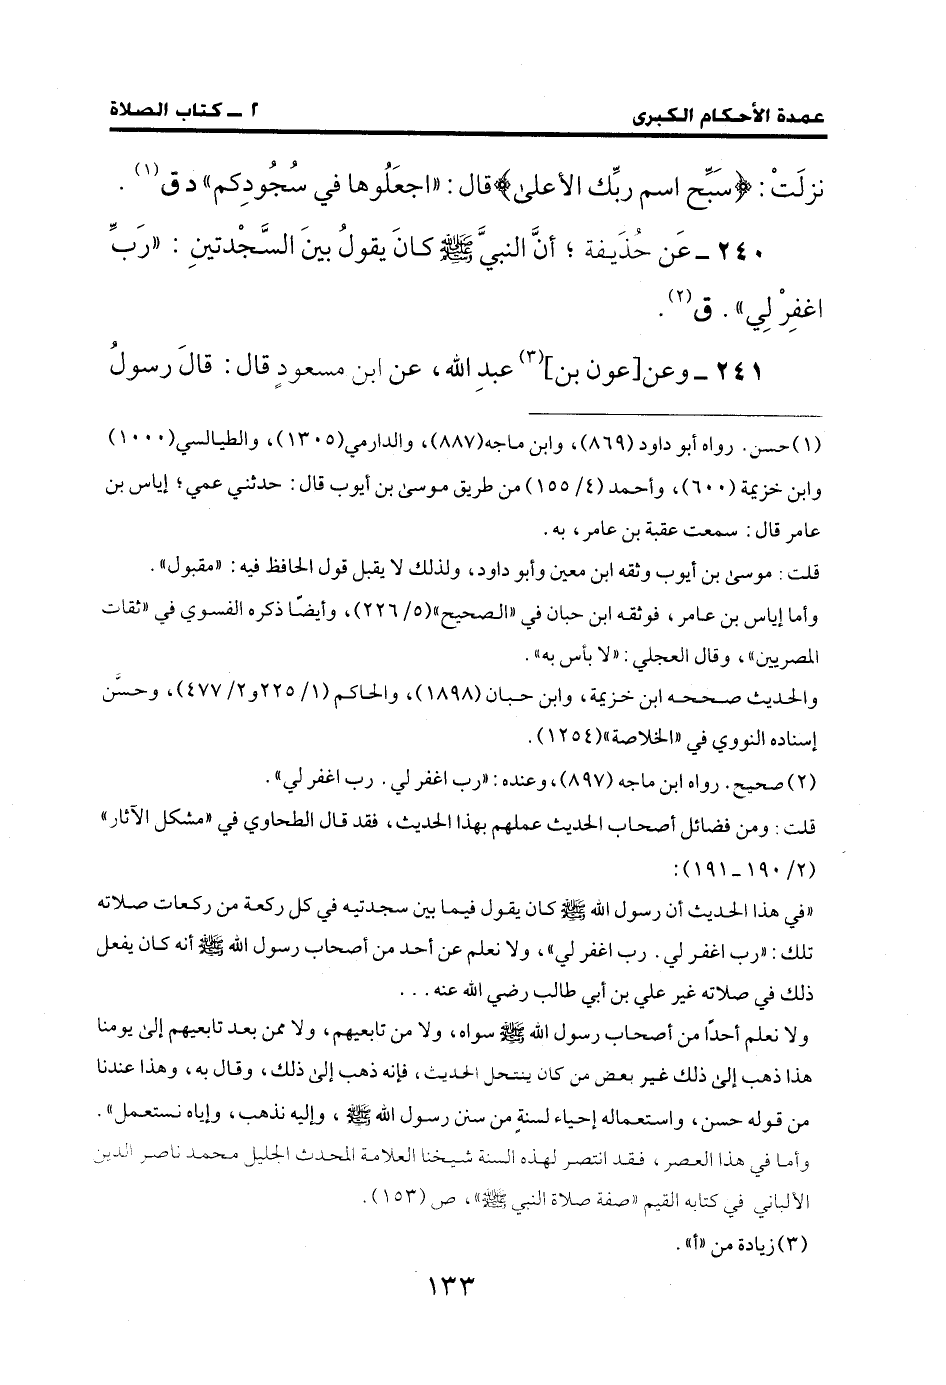 عمدة الأحكام الكبرى ٢ ـ كتاب الصلاة
نزلَتْ : ﴿سَبِّح اسم ربِّك الأعلىٰ﴾ قال : «اجعَلُوها في سُجُودِكم» د ق(١) .
٢٤٠ ـ عَن حُذَيفة ؛ أنَّ النبيَّ ﷺ كانَ يقولُ بينَ السَّجْدتينِ : «رَبِّ
اغفِرْ لِي» . ق(٢).
٢٤١ ـ وعن [عون بن](٣) عبدِ الله ، عن ابن مسعودٍ قال : قالَ رسولُ
(١) حسن . رواه أبو داود (٨٦٩)، وابن ماجه (٨٨٧)، والدارمي (١٣٠٥)، والطيالسي (١٠٠٠)
وابن خزيمة (٦٠٠)، وأحمد (٤/ ١٥٥) من طريق موسىٰ بن أيوب قال : حدثني عمي ؛ إياس بن
عامر قال : سمعت عقبة بن عامر ، به .
قلت : موسىٰ بن أيوب وثقه ابن معين وأبو داود، ولذلك لا يقبل قول الحافظ فيه : «مقبول» .
وأما إياس بن عامر ، فوثقه ابن حبان في «الصحيح» (٥/ ٢٢٦)، وأيضًا ذكره الفسوي في «ثقات
المصريين» ، وقال العجلي : «لا بأس به» .
والحديث صححه ابن خزيمة، وابن حبان (١٨٩٨)، والحاكم (١/ ٢٢٥ و٢/ ٤٧٧)، وحسَّن
إسناده النووي في «الخلاصة» (١٢٥٤).
(٢) صحيح . رواه ابن ماجه (٨٩٧)، وعنده : «رب اغفر لي . رب اغفر لي» .
قلت : ومن فضائل أصحاب الحديث عملهم بهذا الحديث، فقد قال الطحاوي في «مشكل الآثار»
(٢/ ١٩٠ ـ ١٩١):
«في هذا الحديث أن رسول الله ﷺ كان يقول فيما بين سجدتيه في كل ركعة من ركعات صلاته
تلك : «رب اغفر لي . رب اغفر لي» ، ولا نعلم عن أحد من أصحاب رسول الله ﷺ أنه كان يفعل
ذلك في صلاته غير علي بن أبي طالب رضي الله عنه . . .
ولا نعلم أحدًا من أصحاب رسول الله ﷺ سواه، ولا من تابعيهم، ولا ممن بعد تابعيهم إلىٰ يومنا
هذا ذهب إلىٰ ذلك غير بعض من كان ينتحل الحديث، فإنه ذهب إلىٰ ذلك، وقال به، وهذا عندنا
من قوله حسن، واستعماله إحياء لسنةٍ من سنن رسول الله ﷺ ، وإليه نذهب، وإياه نستعمل» .
وأما في هذا العصر ، فقد انتصر لهذه السنة شيخنا العلامة المحدث الجليل محمد ناصر الدين
الألباني في كتابه القيم «صفة صلاة النبي ﷺ» ، ص (١٥٣).
(٣) زيادة من «أ» .
١٣٣